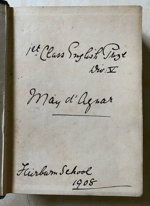 1st Class English Prize
Div V
May d'Aguar
Fairburn School
1908